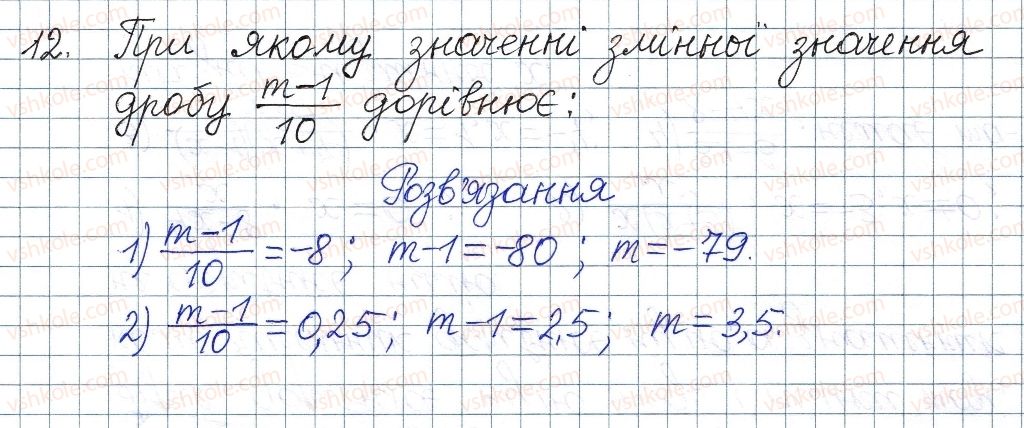 12. При якому значенні змінної значення
дробу m-1/10 дорівнює:
Розв'язання
1) m-1/10 = -8; m-1 = -80; m = -79.
2) m-1/10 = 0,25; m-1 = 2,5; m = 3,5.